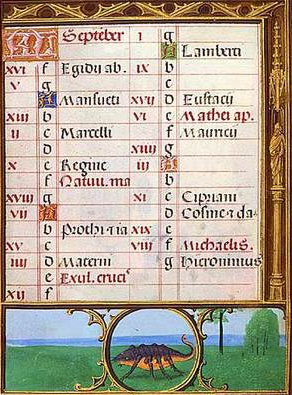 KL Septēber
xvi f Egidii ab.
v g
A Mansueti
xiii b
ii c Marcelli
d
x e Regine
f Natiui. ma
xviii g
vii A
b Prothi ⁊ ia
xv c
iiii d Materni
e Exul. cruci⁹
xii f
i g
A Lamberti
ix b
c
xvii d Eustacii
vi e Mathei ap.
f Mauricii
xiiii g
iii A
b
xi c Cipriani
d Cosme ⁊ da
xix e
viii f Michaelis.
g Hieronimius